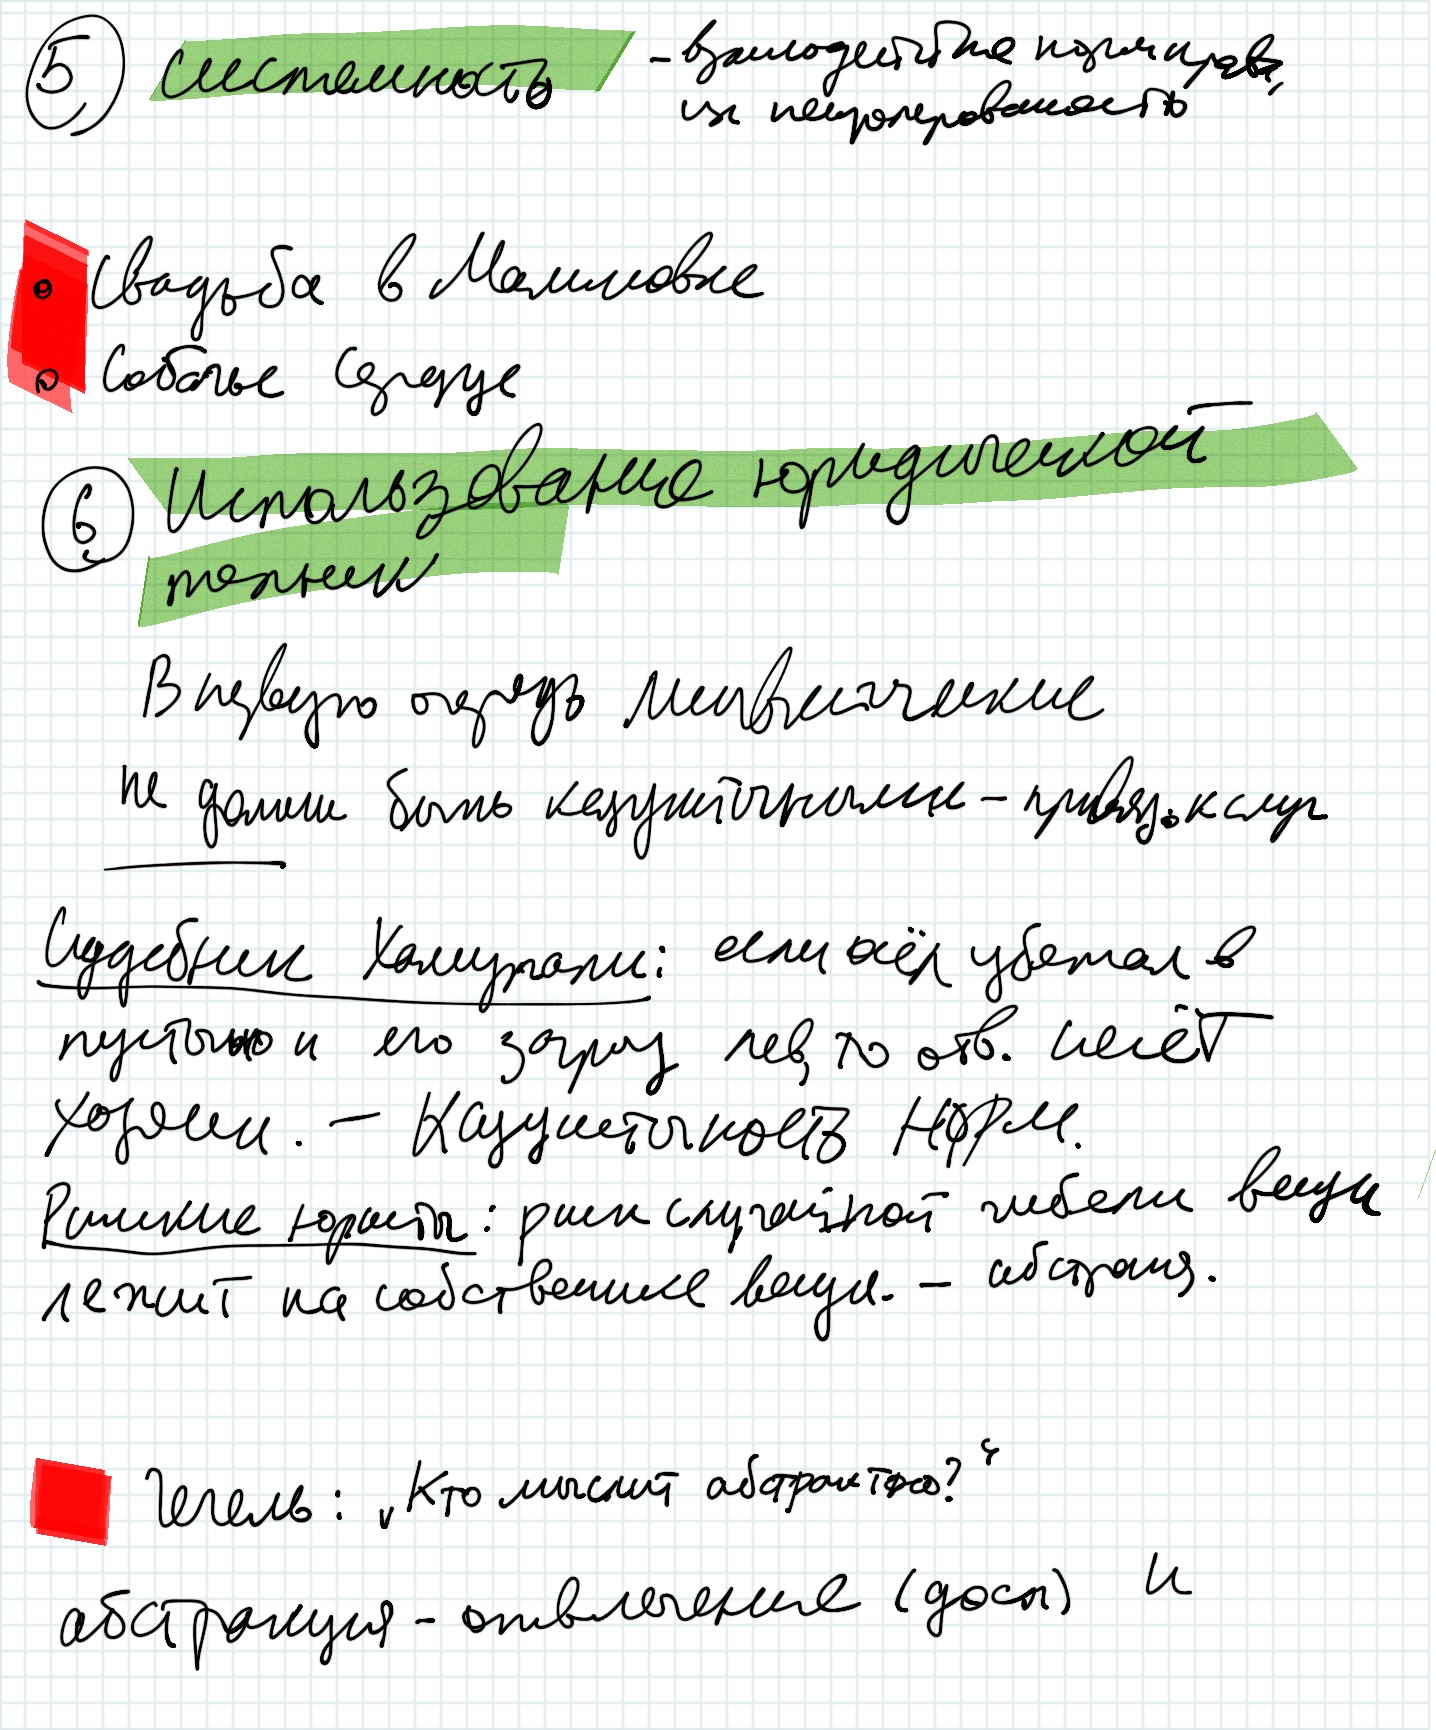 5) Системность - взаимодействие норм права,
их неизолированость
Свадьба в Малиновке
Собачье сердце
6 Использование юридической
техники
В первую очередь
не должны быть казуистичными - привяз. к случ
Судебник Хаммурапи: если осёл убежал в
пустыню и его загрыз лев, то отв. несёт
хозяин. - Казуистичность норм.
Римские юристы: риск случайной гибели вещи
лежит на собственнике вещи. - абстракц.
Гегель: „Кто мыслит абстрактно?“
абстракция - отвлечение (досл) и